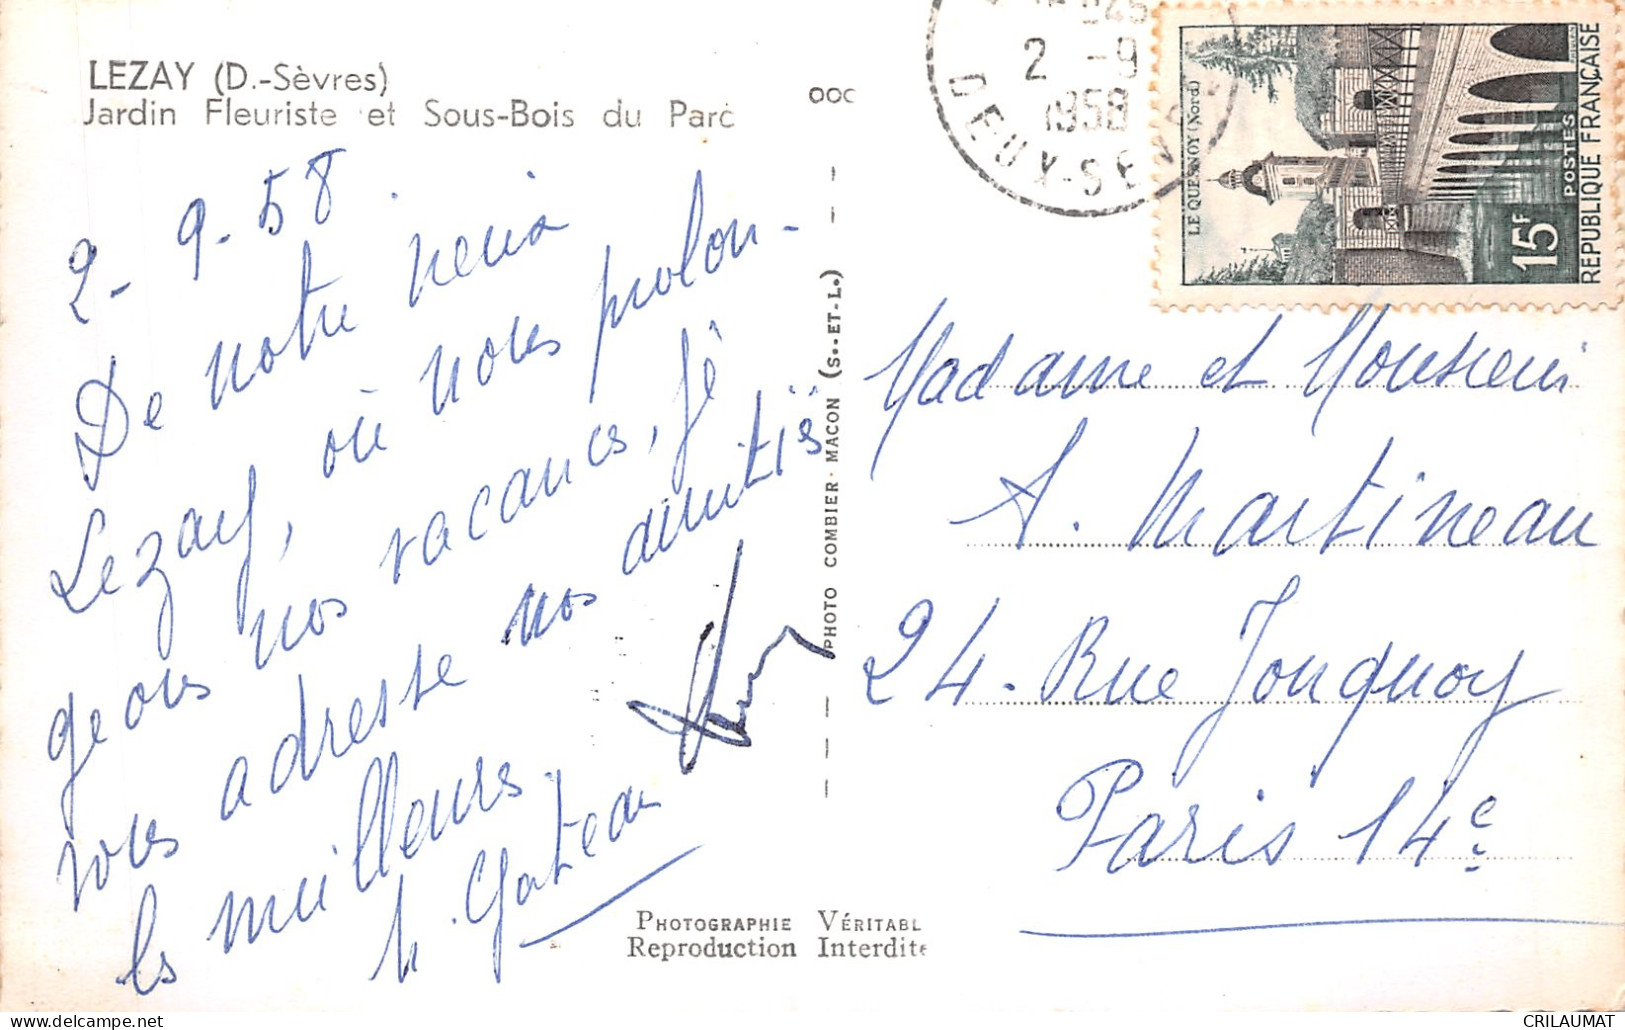 LEZAY (D.-Sèvres)
Jardin Fleuriste et Sous-Bois du Parc
2-9-58
De notre vieux
Lezay, où nous prolon-
geons nos vacances, je
vous adresse nos amitiés
les meilleurs.
Gateau
PHOTO COMBIER - MACON (S.-ET-L.)
PHOTOGRAPHIE VÉRITABL
Reproduction Interdite
2 -9
1958
DEUX-SEV
LE QUESNOY (Nord)
15F
POSTES
REPUBLIQUE FRANÇAISE
Madame et Monsieur
A. Martineau
24. Rue Jonquoy
Paris 14e
CRILAUMAT